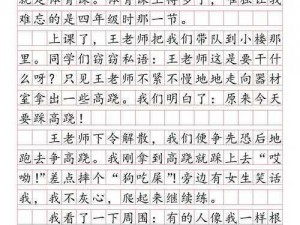 就是体育课。
难忘的是四年级时那一节。
上课了，王老师把我们带队到小楼那
里。同学们窃窃私语：王老师这是要干什
么呀？只见王老师不紧不慢地走向器材
室拿出一些高跷。我们明白了：原来今天
要踩高跷！
王老师下令解散，我们便争先恐后地
跑去争高跷。我刚拿到高跷就踩上去“哎
呦！”差点摔个“狗吃屎”！旁边有女生笑话
我，我不灰心，爬起来继续练。
我看了一下周围：有的人像我一样根